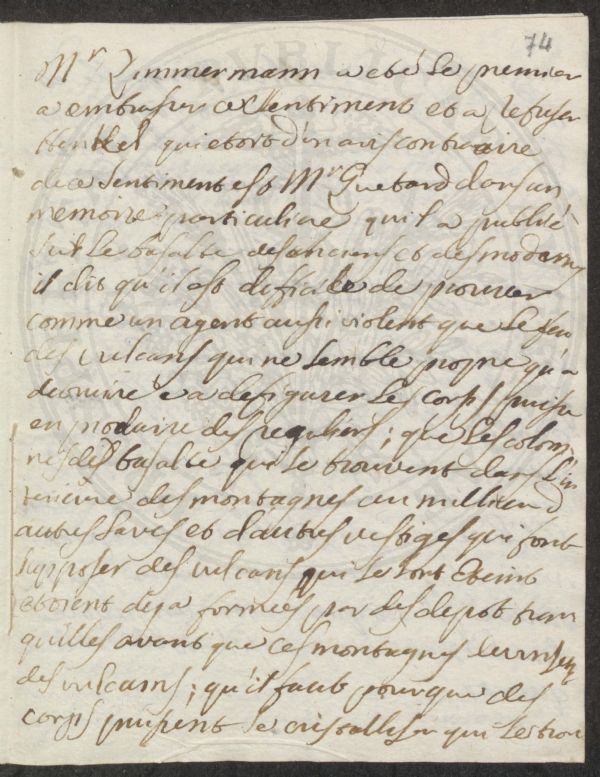 74
Mr Zimmermann a eté le premier
a embrasser ce sentiment et a refuser
henkel qui etoit d'un avis contraire
de ce sentiment est Mr Guetard dans un
memoire particuliere qu'il a publié
sur le basalte des anciens et des modernes
il dit qu'il est difficile de prouver
comme un agent aussi violent que le feu
des vulcans qui ne semble propre qu'a
detruire e a defigurer les corps puisse
en produire des reguliers; que les colom
nes de basalte qui se trouvent dans l'in
terieure des montagnes au millieu d
autres laves et d'autres vestiges qui font
supposer des vulcans qui se sont eteint
etoient deja formées par des depot tran
quilles avant que ces montagnes devinsent
des vulcans; qu'il faut pourque des
corps puissent se cristalliser qui se trou